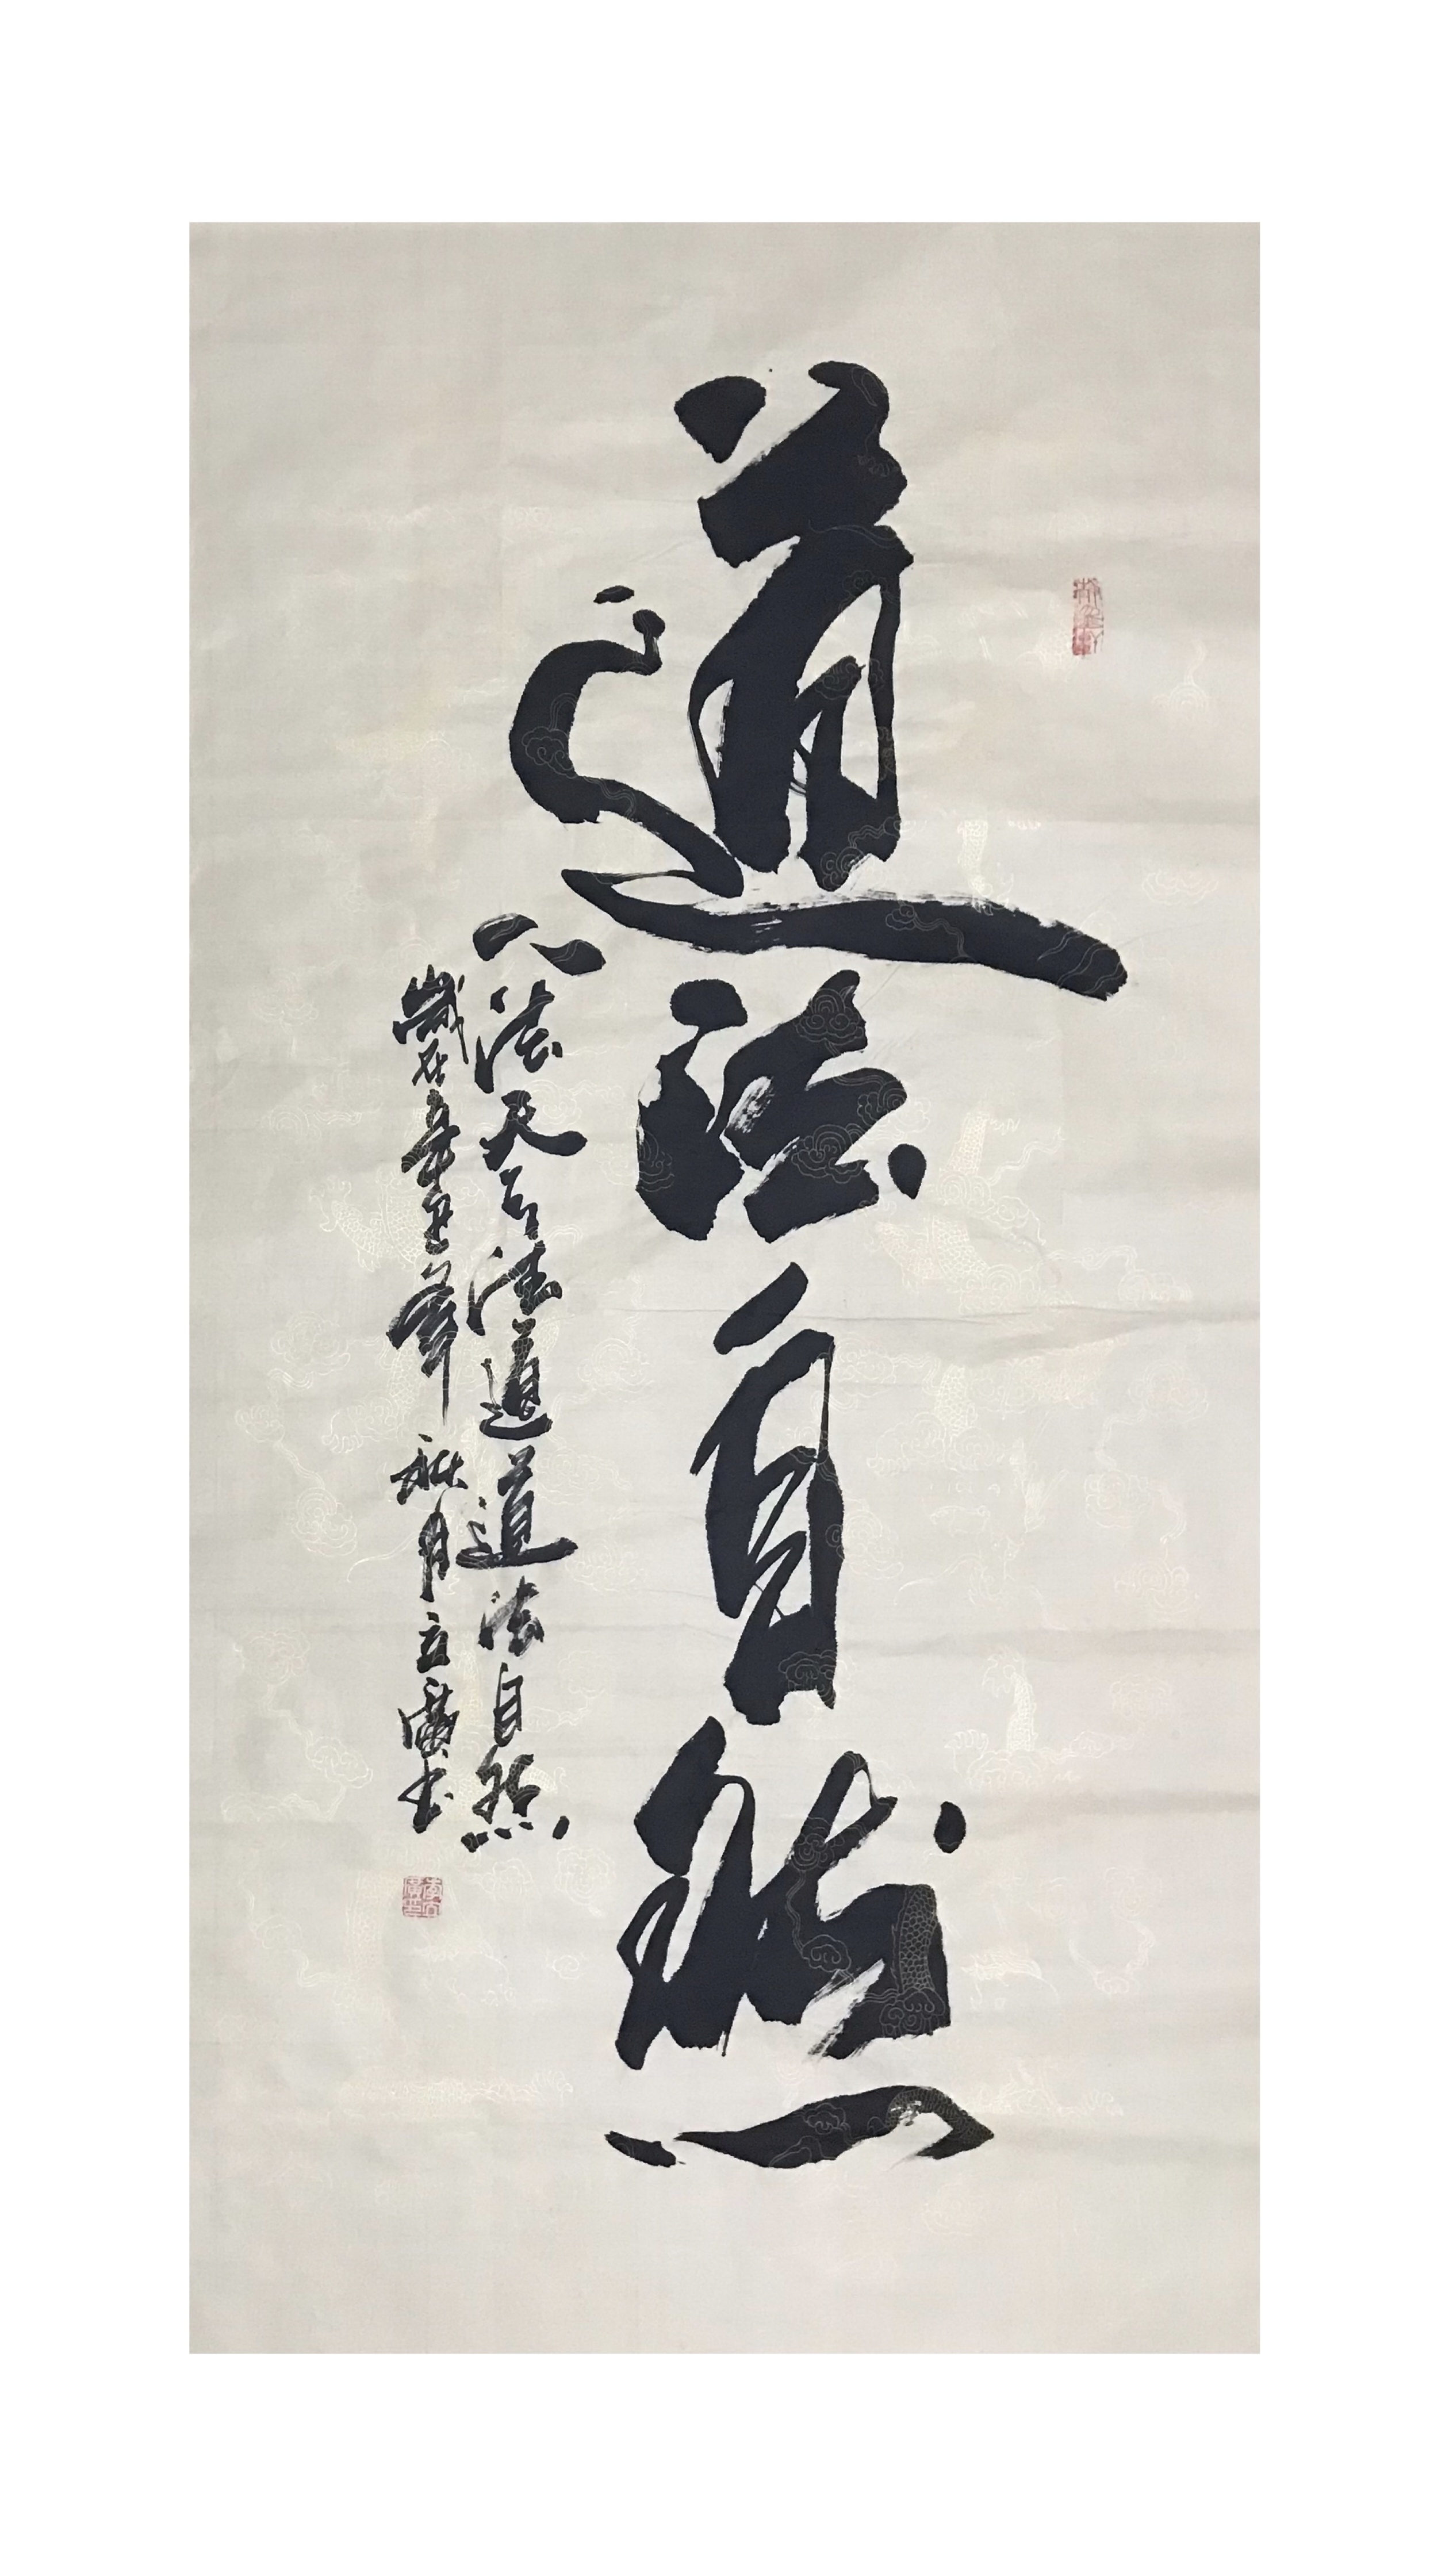 道法自然
人法天々法道道法自然
歲在辛丑年秋月立廣書